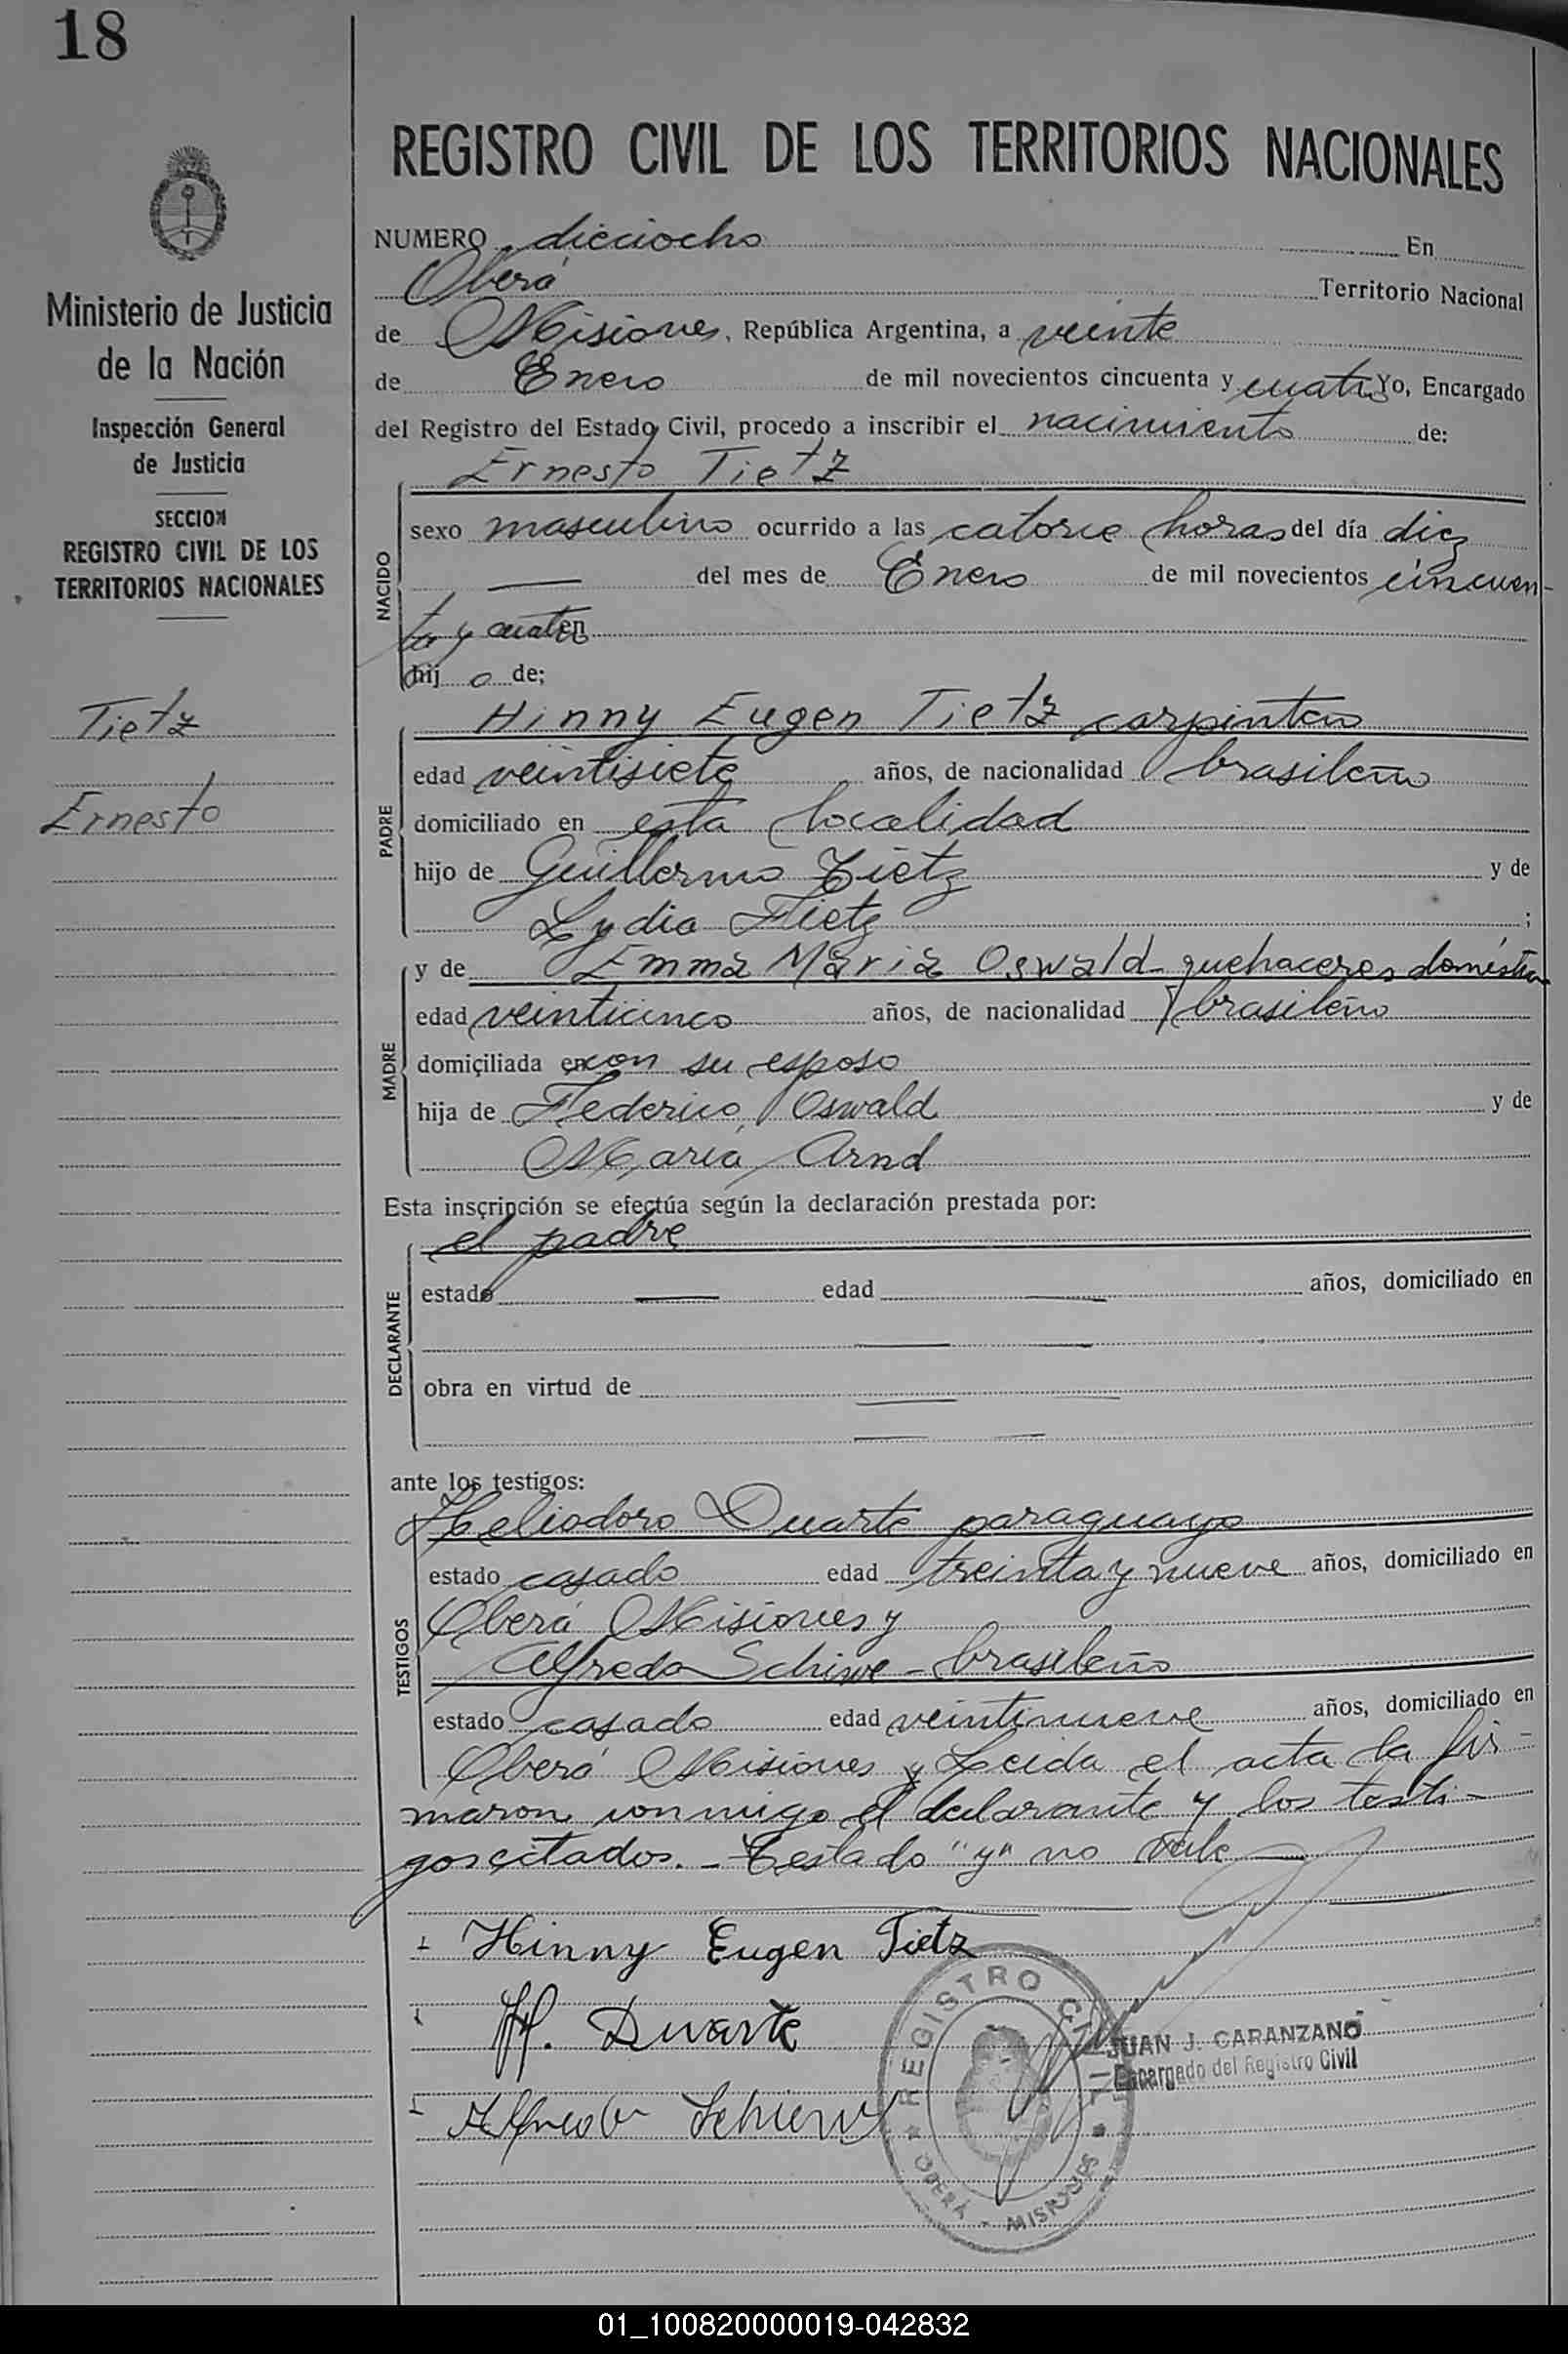 18
REGISTRO CIVIL DE LOS TERRITORIOS NACIONALES
Ministerio de Justicia
de la Nación
Inspección General
de Justicia
SECCION
REGISTRO CIVIL DE LOS
TERRITORIOS NACIONALES
Tietz
Ernesto
NUMERO dieciocho En
Oberá Territorio Nacional
de Misiones, República Argentina, a veinte
de Enero de mil novecientos cincuenta y cuatro Yo, Encargado
del Registro del Estado Civil, procedo a inscribir el nacimiento de:
NACIDO
Ernesto Tietz
sexo masculino ocurrido a las catorce horas del día diez
del mes de Enero de mil novecientos cincuen-
ta y cuatro en
hij o de;
PADRE
Hinny Eugen Tietz carpintero
edad veintisiete años, de nacionalidad brasileño
domiciliado en esta localidad
hijo de Guillermo Tietz y de
Lydia Fietz ;
MADRE
y de Emma Maria Oswald quehaceres domésticos
edad veinticinco años, de nacionalidad brasileño
domiciliada en con su esposo
hija de Federico Oswald y de
María Arnd
Esta inscripción se efectúa según la declaración prestada por:
DECLARANTE
el padre
estado edad años, domiciliado en
obra en virtud de
ante los testigos:
TESTIGOS
Heliodoro Duarte paraguayo
estado casado edad treinta y nueve años, domiciliado en
Oberá Misiones y
Alfredo - brasileño
estado casado edad veintinueve años, domiciliado en
Oberá Misiones y Leida el acta la fir-
maron conmigo el declarante y los testi-
gos citados. - Testado "y" no vale
Hinny Eugen Tietz
H. Duarte
Alfredo
REGISTRO CIVIL
OBERÁ - MISIONES
JUAN J. CARANZANO
Encargado del Registro Civil
01_100820000019-042832